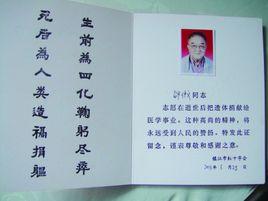 生前為四化鞠躬尽瘁
死后為人类造福捐軀
同志
志愿在逝世后把遗体捐献给
医学事业。这种高尚的精神，将
永远受到人民的赞扬。特发此证
留念，谨表尊敬和感谢之意。
镇江市红十字会
年 月 日